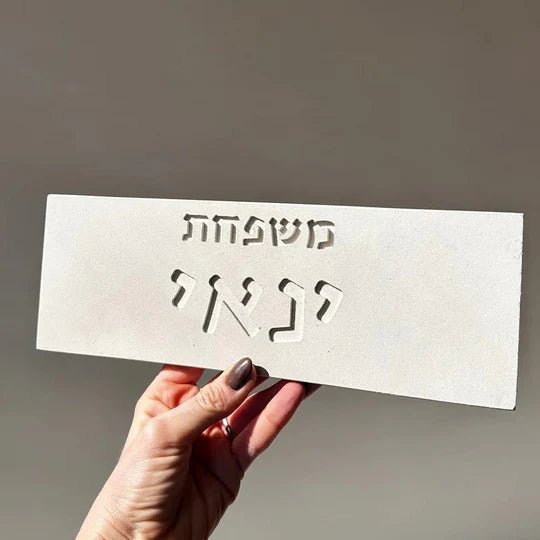 משפחת
ינאי